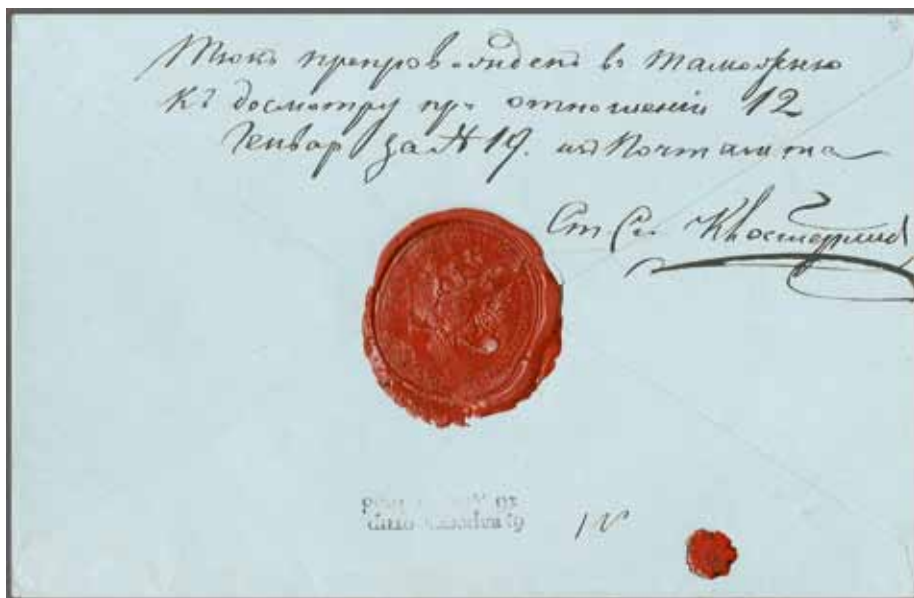 Тюкъ препровожденъ въ таможню
къ досмотру при отношеніи 12
Генвар за № 19. изъ Почтамта